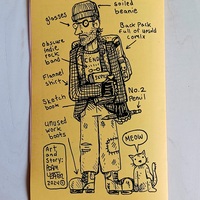 soiled
beanie
glasses
Back Pack
Full of unsold
comix
obscure
indie
rock
band
Flannel
shirt
Sketch
book
No. 2
Pencil
unused
work
boots
MEOW
Art
and
Story: